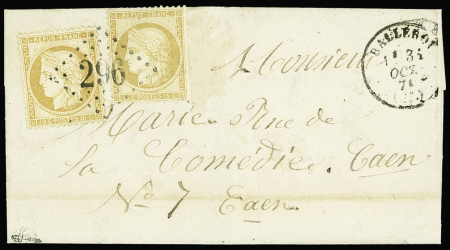 REPUB. FRANC.
REPUB. FRANC.
296
BALLEROY
31
OCT.
71
Monsieur
Marie Rue de
la Comedie. Caen
No 7 Caen